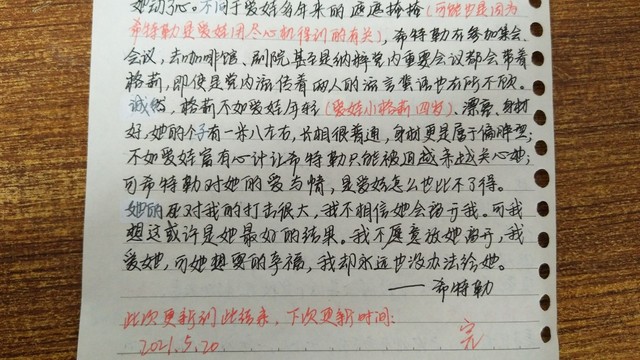 她动了心。不同于爱娃多年来的遮遮掩掩(可能也是因为
希特勒是爱娃用尽心机得到的有关),希特勒在参加集会、
会议,去咖啡馆、剧院甚至是纳粹党内重要会议都会带着
格莉,即使是党内流传着两人的流言蜚语也在所不顾。
诚然,格莉不如爱娃年轻(爱娃小格莉四岁)、漂亮、身材
好,她的个子有一米八左右,长相很普通,身材更是属于偏胖型;
不如爱娃富有心计让希特勒只能被迫越来越关心她;
可希特勒对她的爱与情,是爱娃怎么也比不了得。
她的死对我的打击很大,我不相信她会离开我。可我
想这或许是她最好的结果。我不愿意放她离开,我
爱她,可她想要的幸福,我却永远也没办法给她。
——希特勒
此次更新到此结束,下次更新时间:
2021.5.20 完